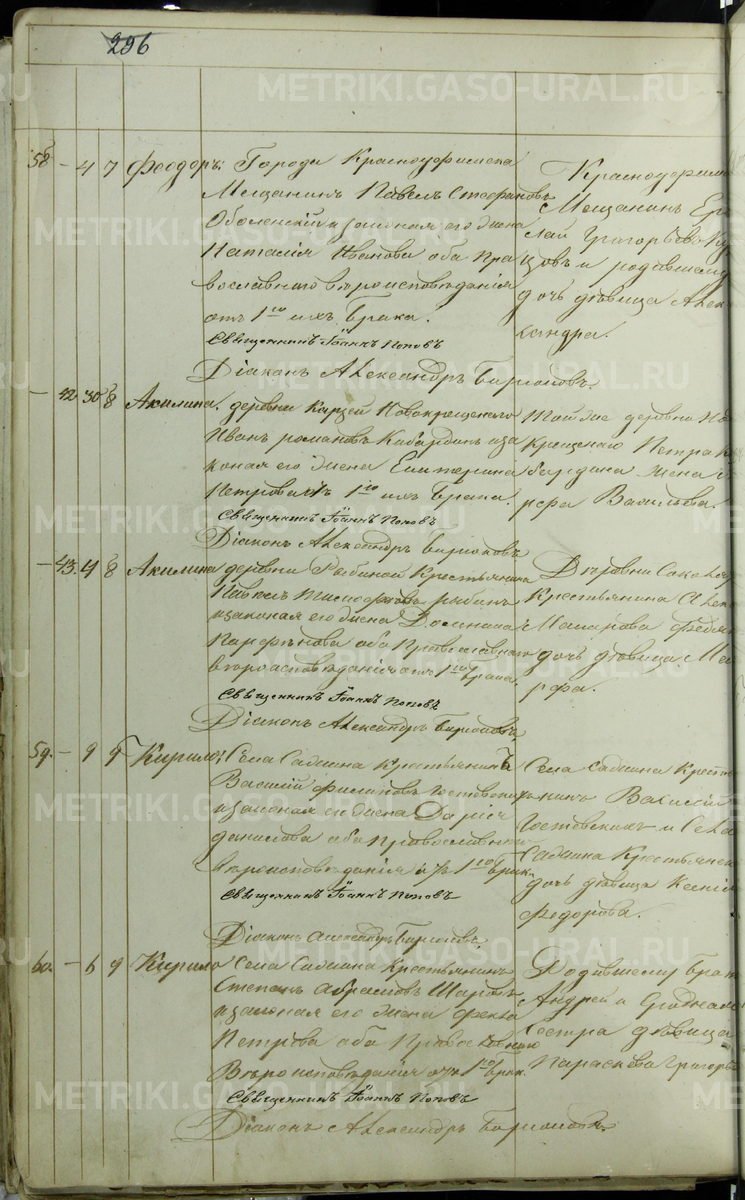 296
METRIKI.GASO-URAL.RU
58 – 4 7 Феодоръ. Города Красноуфимска
Мещанинъ Павелъ Стефановъ
Оболенскій и законная его жена
Наталія Иванова оба Пра
вославнаго вѣроисповѣданія
отъ 1го ихъ брака.
Священникъ Іоаннъ Поповъ
Діаконъ Александръ Бирюковъ.
Красноуфимс
Мещанинъ Ер
лай Григорьевъ
цовъ и родившаго
дочь дѣвица Алек
сандра.
– 42 30/8 Акилина. деревни Новокрещенаго
Иванъ Романовъ Кабардинъ и за
конная его жена Екатерина
Петрова отъ 1го ихъ брака.
Священникъ Іоаннъ Поповъ
Діаконъ Александръ Бирюковъ
Той же деревни Ново
Крещенаго Петра Ка
бардина жена
Васильева.
– 43. 4 8 Акилина деревни Рыбиной Крестьянинъ
Павелъ Тимофеевъ Рыбинъ
и законная его жена Домника
Парфенова оба Православнаго
вѣроисповѣданія отъ 1го брака.
Священникъ Іоаннъ Поповъ
Діаконъ Александръ Бирюковъ
Деревни
Крестьянина
Макарова
дочь дѣвица Ма
рфа.
59. – 9 9 Кирилъ Села Сажина Крестьянинъ
Василій Филиповъ
и законная его жена Дарія
Данилова оба православнаго
вѣроисповѣданія отъ 1го брак.
Священникъ Іоаннъ Поповъ
Діаконъ Александръ Бирюковъ.
Села Сажина Кресть
янинъ Василій
и Села
Сажина Крестьянск
дочь дѣвица Ксенія
Федорова.
60. – 6 9 Кирило Села Сажина Крестьянинъ
Степанъ Абрамовъ
и законная его жена Фекла
Петрова оба Православнаго
Вѣроисповѣданія отъ 1го брак.
Священникъ Іоаннъ Поповъ
Діаконъ Александръ Бирюковъ.
Родившему брат
Андрей и
сестра дѣвица
Параскева Григорь